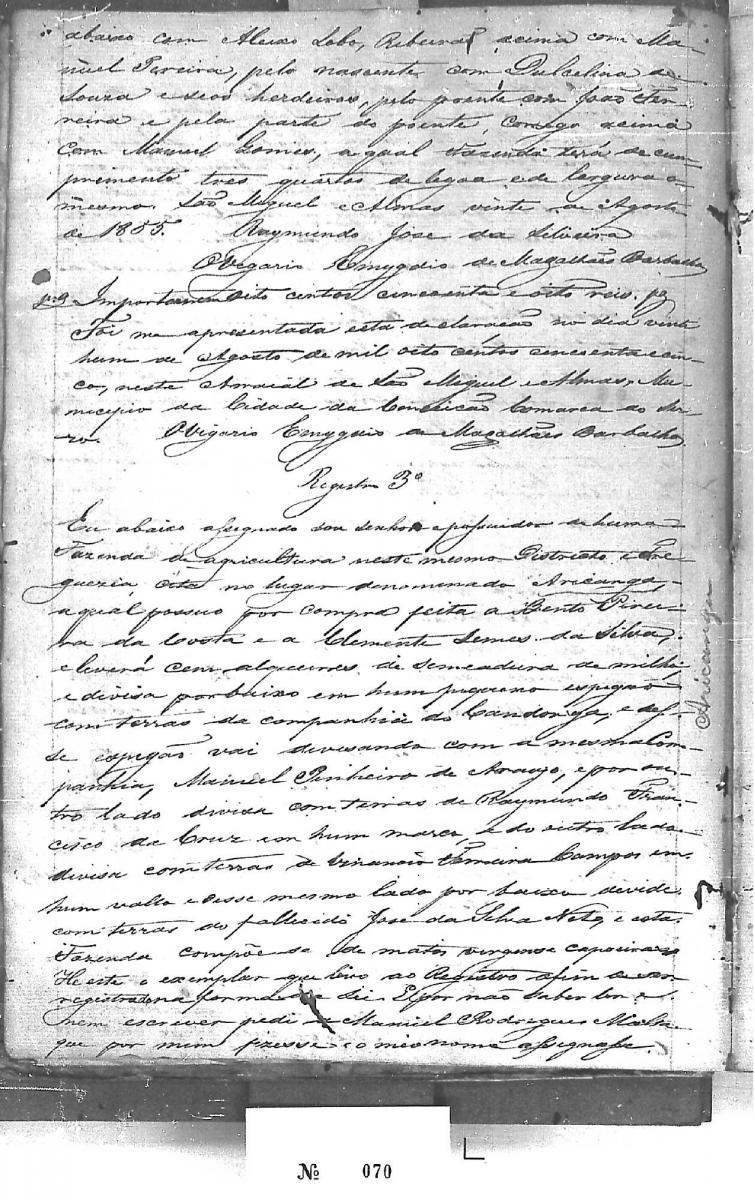 abaixo com Aleixo Lobo, Ribeirão acima com Ma-
nuel Pereira, pelo nascente com Dulcelina de
Souza e seos herdeiros, pelo poente com João Fer-
reira e pela parte do poente, corrego acima
com Manuel Gomes, a qual Fazenda terá de cum-
primento tres quartos de legoa e de largura o
mesmo. São Miguel e Almas vinte de Agosto
de 1855. Raymundo Jose da Silveira
O Vigario Emygdio de Magalhães Barbalho
Oito centos cincoenta e oito reis. pg
Foi me apresentada esta declaração no dia vinte
hum de Agosto de mil oito centos cincoenta e cin-
co, neste Arraial de São Miguel e Almas, Mu-
nicipio da Cidade da Conceicão Comarca do Ser-
ro. O Vigario Emygdio de Magalhães Barbalho
Registro 3º
Eu abaixo assignado sou senhor e possuidor de huma
Fazenda de agricultura neste mesmo Districto e Fre-
guezia, cita no lugar denominado Aricanga,
a qual possuo por compra feita a Bento Perei-
ra da Costa e a Clemente Lemes da Silva,
e levará cem alqueires de semeadura de milho,
e divisa por baixo em hum piqueno espigão
com terras da companhia do Candonga, e des-
se espigão vai divisando com a mesma Com-
panhia, Manuel Pinheiro de Araujo, e por ou-
tro lado divisa com terras de Raymundo Fran-
cisco da Cruz em hum marco, e do outro lado
divisa com terras de Venancio Ferreira Campos em
hum vallo e desse mesmo lado por baixo devide
com terras do fallecido Jose da Silva Neto, e esta
Fazenda compõe se de matos virgens e capoeiras
He este o exemplar que levo ao Registro afim de ser
registrado na forma da Lei. E por não saber ler
nem escrever pedi a Manuel Rodrigues
que por mim fizesse e o meo nome assignasse.
Aricanga
Nº 070